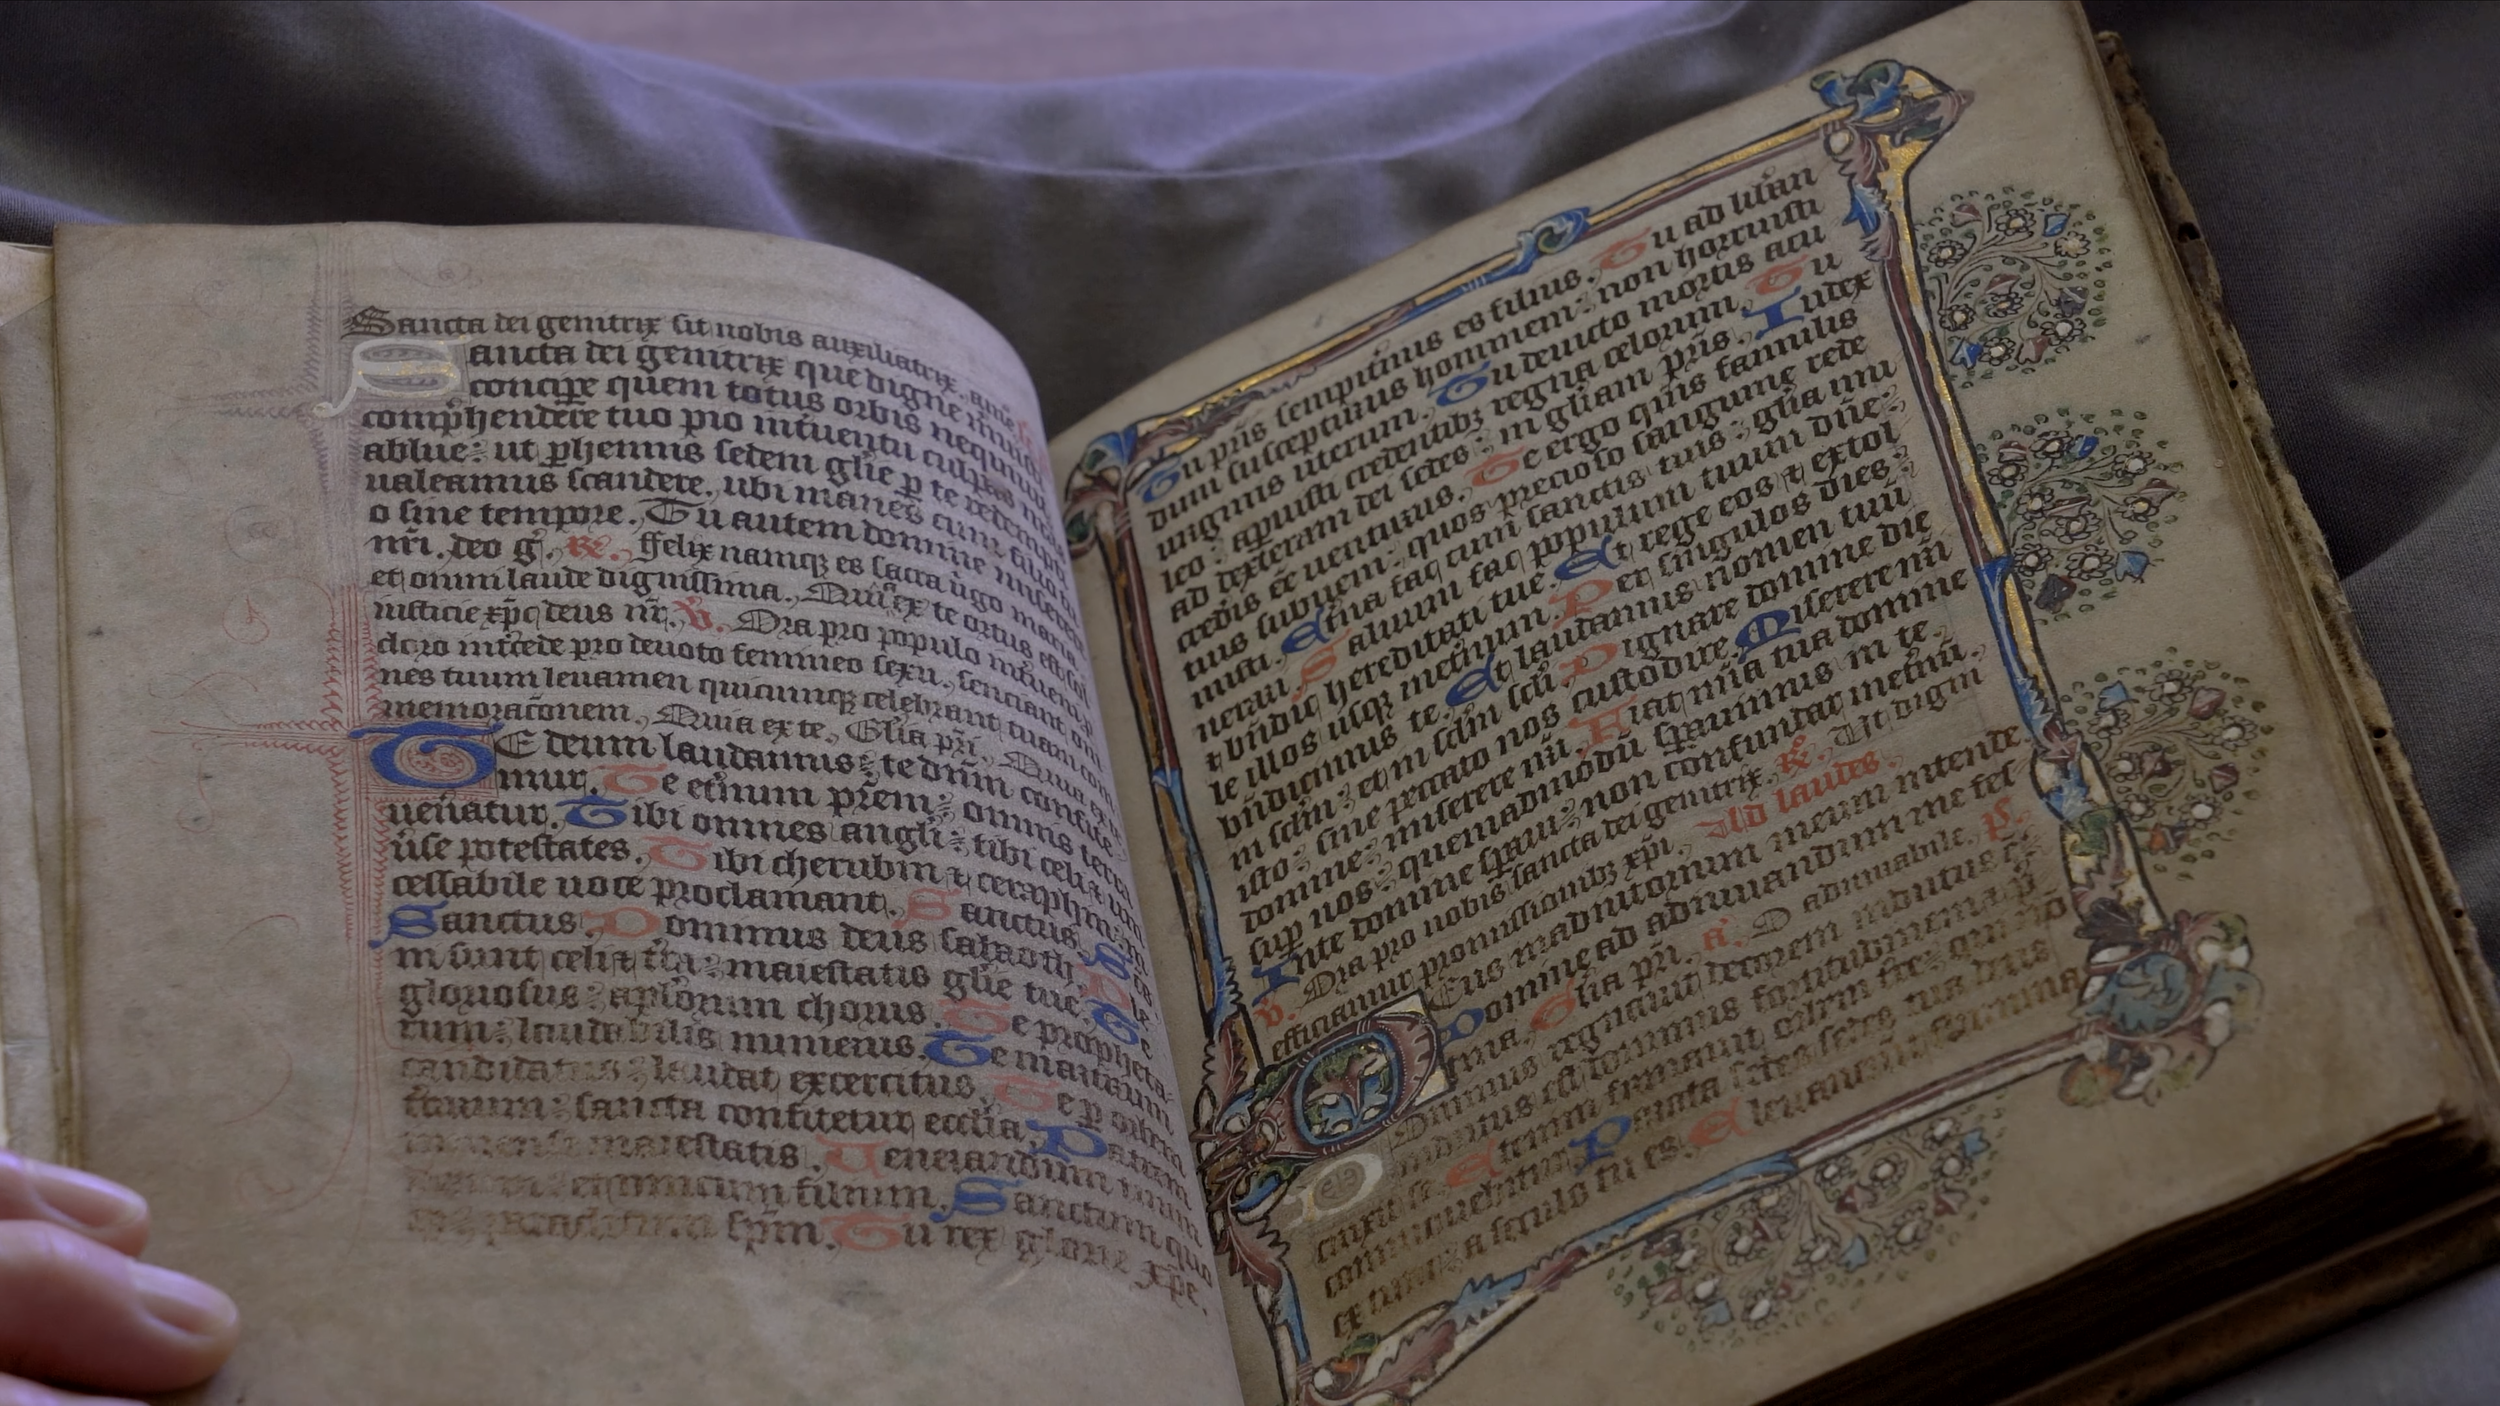 Sancta dei genitrix sit nobis auxiliatrix. ame
Sancta dei genitrix que digne
concipe quem totus orbis nequiuit
comp̄hendere tuo pio int̄uentu culpas
ablue: ut p̱hennis sedem glīe p̱ te redempti
ualeamus scandere. ubi manes cum filio
o sine tempore. Tu autem domine miserere
nr̄i. deo ḡ. R̄. Ffelix namqꝫ es sacra ūgo maria
et omni laude dignissima. Quia ex te ortus est sol
iusticie xp̄c deus nr̄. V̄. Ora pro populo int̄ueni p̱
clero int̄cede pro deuoto femineo sexu. senciant om
nes tuum leuamen quicumqꝫ celebrant tuam com
memoracōnem. Quia ex te. Glīa pr̄i. Quia ex te
TE deum laudamus: te dn̄m confite
mur. Te et̄num pr̄em: omnis terra
ueneratur. Tibi omnes angl̄i: tibi celi ⁊ un
ūse potestates. Tibi cherubin ⁊ ceraphin
cessabile uoce proclamant. Sanctus. S
Sanctus. Dominus deus sabaoth.
m sunt celi ⁊ t̄ra: maiestatis glīe tue. Te
gloriosus: apl̄orum chorus. Te propheta
rum: laudabilis numerus. Te martirum
candidatus: laudat exercitus. Te p̱ orbem
t̄rarum: sancta confitetur eccl̄ia. Patrem
maiestatis. Uenerandum tuum
et unicum filium. Sanctum quo
sp̄m. Tu rex glorie xp̄e.
Tu pr̄is sempit̄nus es filius. Tu ad lib̄an
dum suscepturus hominem: non horruisti
uirginis uterum. Tu deuicto mortis acu
leo: apuisti credentibꝫ regna celorum. Tu
ad dexteram dei sedes: in gl̄iam pr̄is. Iudex
crederis eē uenturus. Te ergo quis famulis
tuis subueni: quos precioso sanguine rede
misti. Et̄na fac cum sanctis tuis: gl̄ia mu
nerari. Saluum fac populum tuum dn̄e:
⁊ bn̄dic hereditati tue. Et rege eos ⁊ extol
le illos usqꝫ inet̄num. Per singulos dies:
bn̄dicimus te. Et laudamus nomen tuū
in sclm̄: et in sclm̄ scl̄i. Dignare domine die
isto: sine peccato nos custodire. Miserere nr̄i
domine: miserere nr̄i. Fiat mīa tua domine
sup̱ nos: quemadmodū sp̱auimus in te.
Inte domine sp̱aui: non confundar inet̄nū.
V̄. Ora pro nobis sancta dei genitrix. R̄. Ut digni
efficiamur promissionibꝫ xp̄i. Ad laudes.
Deus in adiutorium meum intende
Domine ad adiuuandum me fes
tina. Glīa pr̄i. a. O admirabile. p̄.
Dominus regnauit decorem indutus
indutus est dominus fortitudinem ⁊ p̱
cinxit se. Etenim firmauit orbem
commouebitur. Parata sedes tua deus
ex tunc: a seculo tu es. Eleuauerūt flumina